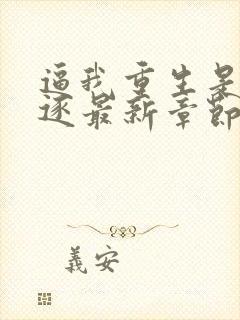 逼我重生是
逐最新章節
義安